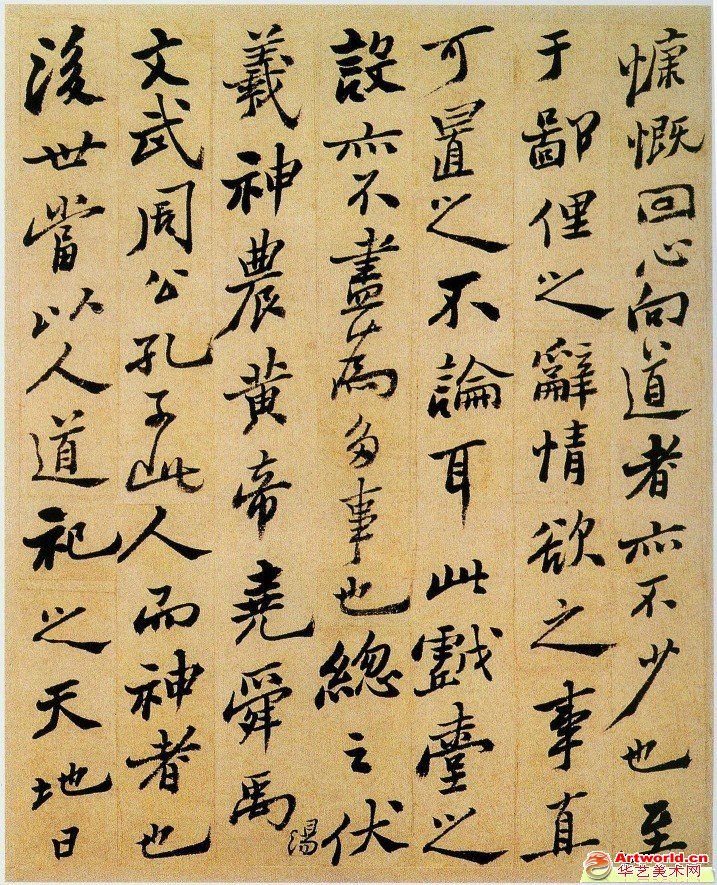 慷慨回心向道者亦不少也至
于鄙俚之辭情欲之事直
可置之不論耳此戲臺之
設亦不盡為多事也總之伏
羲神農黄帝堯舜禹湯
文武周公孔子此人而神者也
後世當以人道祀之天地日
Artworld.cn
华艺美术网